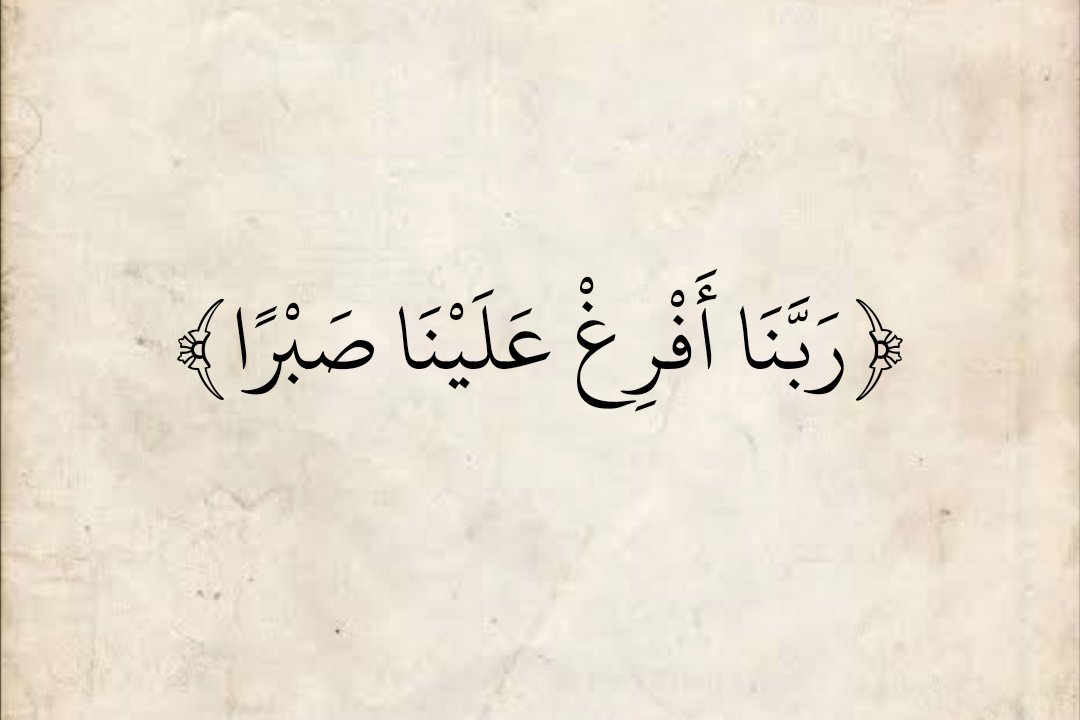 ﴿رَبَّنَا أَفْرِغْ عَلَيْنَا صَبْرًا﴾